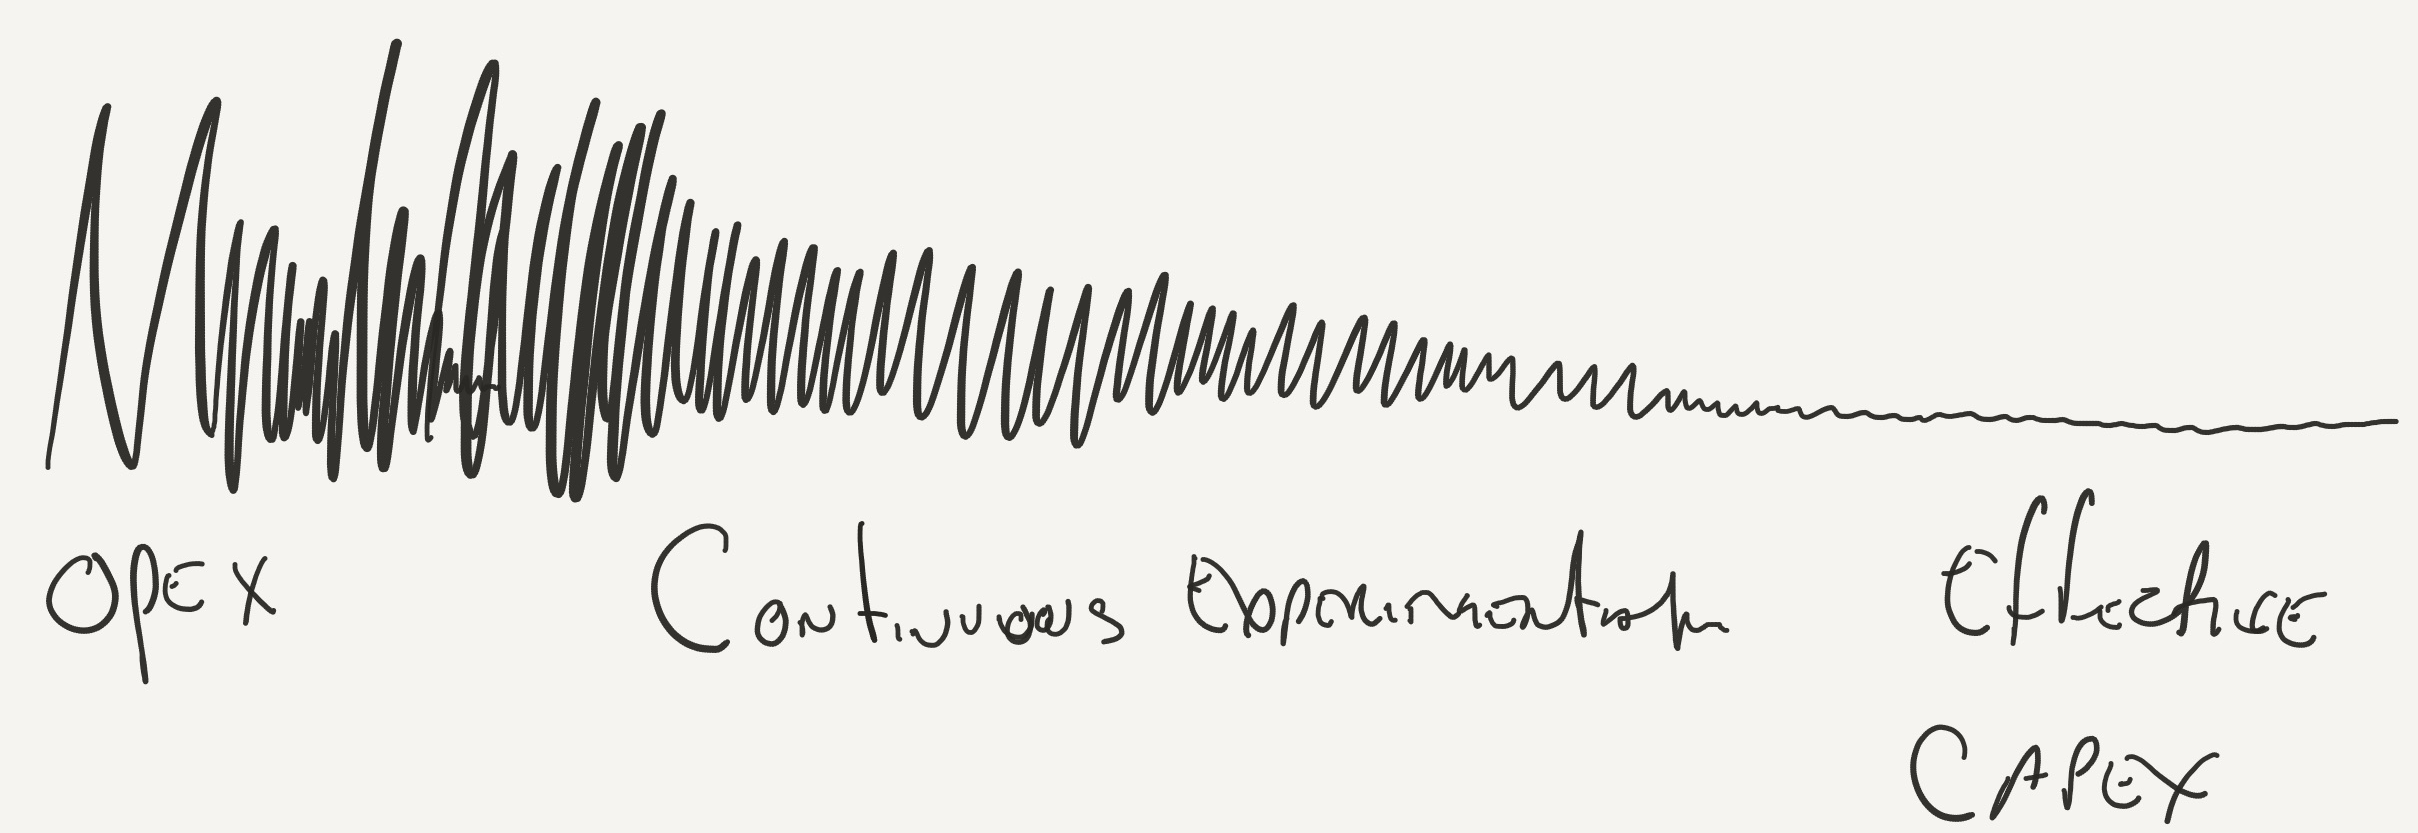 OPEX Continuous Experimentation Effective
CAPEX